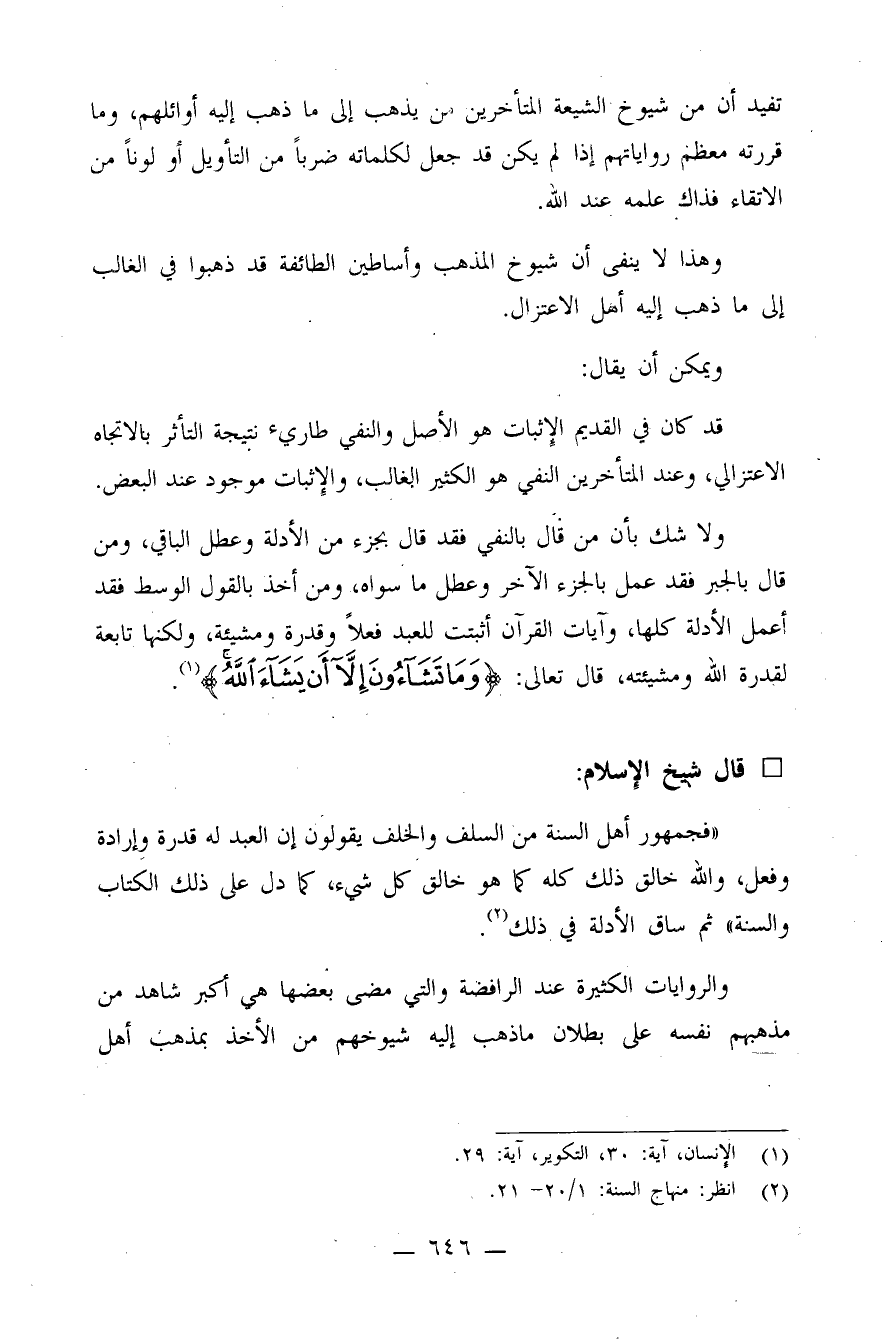 تفيد أن من شيوخ الشيعة المتأخرين من يذهب إلى ما ذهب إليه أوائلهم، وما
قررته معظم رواياتهم إذا لم يكن قد جعل لكلماته ضرباً من التأويل أو لوناً من
الاتقاء فذاك علمه عند الله.
وهذا لا ينفى أن شيوخ المذهب وأساطين الطائفة قد ذهبوا في الغالب
إلى ما ذهب إليه أهل الاعتزال.
ويمكن أن يقال:
قد كان في القديم الإثبات هو الأصل والنفي طاريء نتيجة التأثر بالاتجاه
الاعتزالي، وعند المتأخرين النفي هو الكثير الغالب، والإثبات موجود عند البعض.
ولا شك بأن من قال بالنفي فقد قال بجزء من الأدلة وعطل الباقي، ومن
قال بالجبر فقد عمل بالجزء الآخر وعطل ما سواه، ومن أخذ بالقول الوسط فقد
أعمل الأدلة كلها، وآيات القرآن أثبتت للعبد فعلاً وقدرة ومشيئة، ولكنها تابعة
لقدرة الله ومشيئته، قال تعالى: ﴿وَمَا تَشَآءُونَ إِلَّآ أَن يَشَآءَ ٱللَّهُۚ﴾(١).
□ قال شيخ الإسلام:
«فجمهور أهل السنة من السلف والخلف يقولون إن العبد له قدرة وإرادة
وفعل، والله خالق ذلك كله كما هو خالق كل شيء، كما دل على ذلك الكتاب
والسنة» ثم ساق الأدلة في ذلك(٢).
والروايات الكثيرة عند الرافضة والتي مضى بعضها هي أكبر شاهد من
مذهبهم نفسه على بطلان ماذهب إليه شيوخهم من الأخذ بمذهب أهل
(١) الإنسان، آية: ٣٠، التكوير، آية: ٢٩.
(٢) انظر: منهاج السنة: ٢٠/١– ٢١.
— ٦٤٦ —